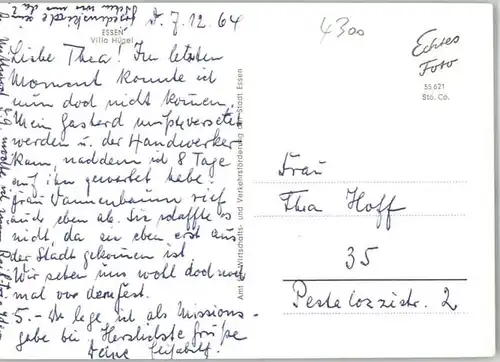 D. 7.12.64
ESSEN
Villa Hügel
Liebe Thea! Im letzten
Moment konnte ich
nun doch nicht kommen.
Mein Gasherd mußte versetzt
werden u. der Handwerker
kam, nachdem ich 8 Tage
auf ihn gewartet habe.
Frau Tannenbaum rief
auch eben ab. Sie schaffte es
nicht, da sie eben erst aus
der Stadt gekommen ist.
Wir sehen uns wohl doch noch
mal vor dem Fest.
5.- Dr lege ich als Missions-
gabe bei Herzlichste Grüße
Deine Elisabeth.
Amt für Wirtschafts- und Verkehrsförderung der Stadt Essen
4300
Echtes
Foto
55 621
Stö. Co.
Frau
Thea Hoff
35
Pestalozzistr. 2